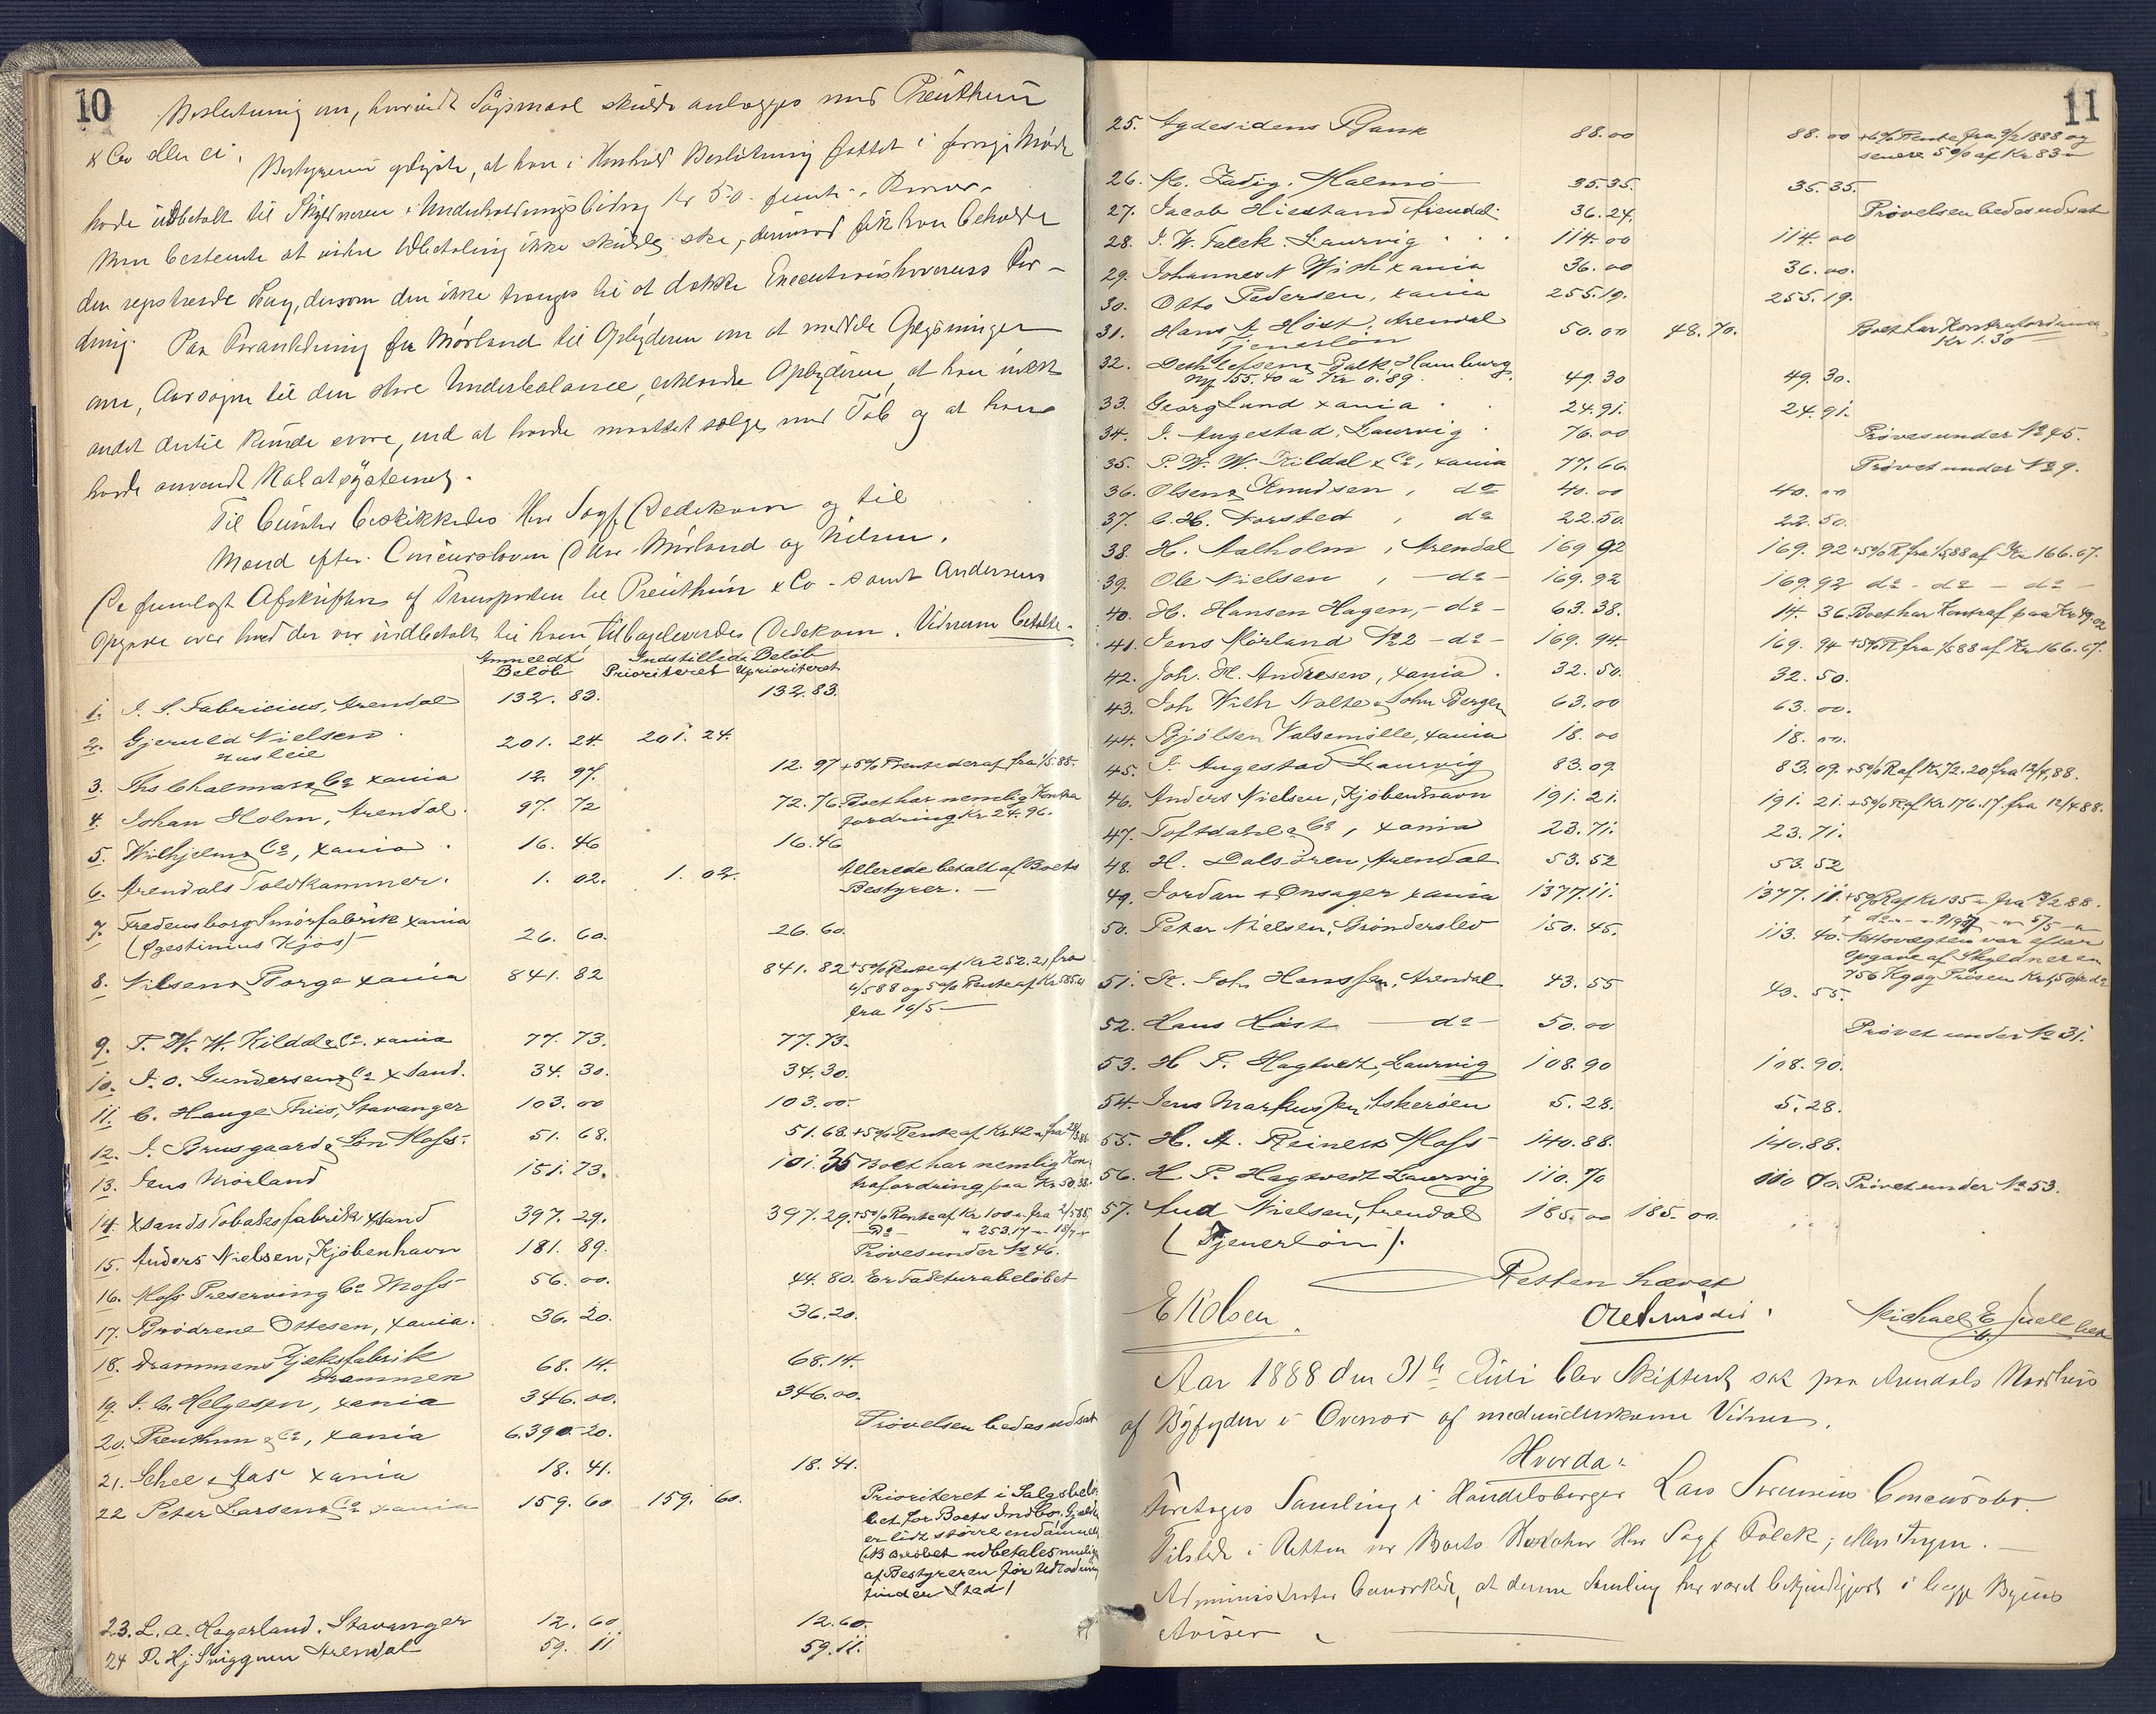 10
Beslutning om, hvorvidt Søgsmaal skulde anlægges mod Preuthun
& Co eller ei.
Bestyreren oplyste, at han i Henhold Beslutning fattet i forrige Møde
havde udbetalt til Skyldneren i Underholdningsbidrag Kr 50 - femti - Kroner.
Man bestemte at videre Udbetaling ikke skulde ske, derimod fik han beholde
den registrerede Seng, dersom den ikke trænges til at dække Executionshaverens For-
dring.
Paa Foranledning fra Mørland til Opbyderen om at meddele Oplysninger
om, Aarsagen til den store Underbalance, erklærede Opbyderen, at han intet
andet dertil kunde svare, end at havde maattet sælge med Tab og at have
havde anvendt Rabatsystemet.
Til Curator beskikkedes Herr Sagf. Dedekam og til
Mænd efter Concursloven DHrr. Mørland og Nilsen.
De fremlagte Afskrifter af til Preuthun & Co - samt Andersens
Opgave over hvad der var indbetalt til ham, tilbageleveredes Dedekam. Vidnerne betalte.
Anmeldt Beløb
Indstillede Beløb
Prioriteret Uprioriteret
1. J. S. Fabricius, Arendal 132. 83. 132.83.
2. Gjeruld Nielsen 201. 24 201. 24.
Husleie
3. Ths Chalmers & Co xania 12. 97. 12. 97 +5% Rente deraf fra 1/5.88.
4. Johan Holm, Arendal. 97. 72 72. 76. Boet har nemlig Kontra
fordring Kr 24.96.
5. Wilhjelm & Co, xania. 16. 46 16.46
6. Arendals Toldkammer. 1. 02. 1. 02. Allerede betalt af Boets
Bestyrer. —
7. Fredensborg Smørfabrik xania
(Øgestinius Kjøs) 26. 60. 26. 60.
8. Nilsen & Borge xania 841. 82 841. 82 +5% Rente af Kr 252.21 fra
4/5 88 og 5% Rente af Kr 585.41
fra 10/5 —
9. P. W. W. Kildal & Co. xania 77. 73. 77.73.
10. J. O. Gundersen & Co xsand. 34. 30. 34.30.
11. C. Hauge Thiis, Stavanger 103. 00 103.00.
12. J. Brusgaard & Søn Moss. 51. 68. 51.68. +5% Rente af Kr 42 " fra 28/3 88
13. Jens Mørland 151. 73. 101. 35 Boet har nemlig Kon-
trafordring paa Kr 50.38.
14. Xsands Tobaksfabrik xsand 397. 29. 397.29. +5% Rente af Kr 100 " fra 2/5 88
Do — " 253.17 — 18/7 "
15. Anders Nielsen, Kjøbenhavn 181. 89. Prøves under No 46.
16. Moss Preserving Co Moss 56. 00. 44. 80. Er Fakturabeløbet
17. Brødrene Ottesen, xania. 36. 20. 36.20.
18. Drammens Kjeksfabrik
Drammen 68. 14. 68.14.
19. J. C. Helgesen, xania 346. 00. 346.00.
20. Preuthun & Co, xania 6.390.20. Prøvelsen bedes udsat
21. Schee & Aas xania 18. 41. 18. 41.
22 Peter Larsen & Co xania 159. 60 159. 60. Prioriteret i Salgsbelø-
bet for Boets Indbo. Gjælden
er lidt større end anmeldt
(NB Beløbet udbetales muligens
af Bestyreren før Udlodning
finder Sted)
23. L. A. Hegerland. Stavanger 12. 60 12.60.
24 P. Hj Sniggum Arendal 59. 11 59.11.
11
25. Agdesidens Bank 88.00 88.00 +6% Rente fra 9/2 1888 og
senere 5% af Kr 83 "
26. M. Zadig. Malmö 35.35. 35.35.
27. Jacob Hiestand Arendal. 36.24. Prøvelsen bedes udsat
28. J. W. Falck. Laurvig 114.00 114.00
29. Johannes N Wisth xania 36.00 36.00.
30. Otto Pedersen, xania 255.19. 255.19.
31. Hans A Höst. Arendal 50.00 48.70. Boet har Kontrafordring
Tjenerløn Kr 1.30
32. Dethlefsen & Balk, Hamburg
Mk 155.40 a Kr 0.89 49.30 49.30.
33. Georg Lund xania 24.91. 24.91.
34. J. Augestad, Laurvig 76.00 Prøves under No 45.
35. P. W. W. Kildal & Co, xania 77.66 Prøvet under No 9.
36. Olsen & Knudsen, do 40.00 40.00
37. C. H. Torsted, do 22.50. 22.50.
38. H. Aalholm, Arendal 169 92 169. 92 +5% R. fra 1/5 88 af Kr 166.67.
39. Ole Nielsen, — do — 169. 92 169 92 do - do - do -
40. H. Hansen Hagen, — do — 63.38. 14. 36. Boet har Kontraf paa Kr 49.02
41. Jens Mørland No 2 — do — 169. 94. 169. 94 +5% R fra 1/5 88 af Kr 166.67.
42. Joh. H. Andresen, xania. 32.50. 32.50.
43. Joh Wilh Nolte & John Bergen 63.00 63.00.
44. Bjölsen Valsemölle, xania 18.00 18.00.
45. J. Augestad Laurvig 83.09. 83.09. +5% R af Kr 72.20 fra 12/4 88.
46. Anders Nielsen, Kjøbenhavn 191.21. 191. 21. +5% R af Kr 176.17 fra 12/4 88.
47. Toftdahl & Co, xania 23.71. 23.71.
48. H. Dalsören, Arendal 53.52 53.52
49. Jordan & Onsager xania 1377.11. 1377.11. +5% R af Kr 135 " fra 19/2 88.
50. Peter Nielsen, Brønderslev 150.45. 113. 40. Nettovægten var efter
Opgave af Skyldneren
756 Kg og Prisen
51. St. Joh Hanssen, Arendal 43.55 43. 55.
52. Hans Höst — do — 50.00 Prøvet under No 31.
53. H P. Hagtvedt, Laurvig 108.90 108.90.
54. Jens Markussen, Askerøen 5.28. 5.28.
55. H. A. Reinert Moss 140.88. 140.88.
56. H P. Hagtvedt Laurvig 110.70 110 70. Prøvet under No 53.
57. Aud Nielsen, Arendal 185.00 185.00.
(Tjenerløn).
Retten hævet
E Kolsen
Michael E Juell
Aar 1888 den 31te Juli blev Skifteret sat paa Arendals Raadhus
af Byfogden i Overvær af medunderskrevne Vidner.
Hvorda:
Foretoges Samling i Handelsborger Lars Sørensens Concursbo.
Tilstede i Retten var Boets Curator Herr Sagf Falck; ellers Ingen. —
Administrator bemærkede, at denne Samling har været bekjendtgjort i begge Byens
Aviser.